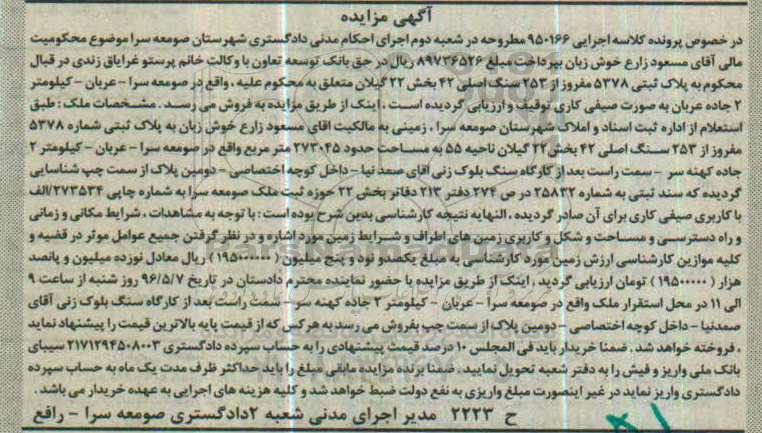 آگهی مزایده
در خصوص پرونده کلاسه اجرایی ۹۵۰۱۶۶ مطروحه در شعبه دوم اجرای احکام مدنی دادگستری شهرستان صومعه سرا موضوع محکومیت
مالی آقای مسعود زارع خوش زبان بپرداخت مبلغ ۸۹۷۳۶۵۲۶ ریال در حق بانک توسعه تعاون با وکالت خانم پرستو غرایاق زندی در قبال
محکوم به پلاک ثبتی ۵۳۷۸ مفروز از ۲۵۳ سنگ اصلی ۴۲ بخش ۲۲ گیلان متعلق به محکوم علیه ، واقع در صومعه سرا – عربان – کیلومتر
۲ جاده عربان به صورت صیفی کاری توقیف و ارزیابی گردیده است ، اینک از طریق مزایده به فروش می رسد . مشخصات ملک : طبق
استعلام از اداره ثبت اسناد و املاک شهرستان صومعه سرا ، زمینی به مالکیت اقای مسعود زارع خوش زبان به پلاک ثبتی شماره ۵۳۷۸
مفروز از ۲۵۳ سنگ اصلی ۴۲ بخش ۲۲ گیلان ناحیه ۵۵ به مساحت حدود ۲۷۳۰۴۵ متر مربع واقع در صومعه سرا – عربان – کیلومتر ۲
جاده کهنه سر – سمت راست بعد از کارگاه سنگ بلوک زنی آقای صمد نیا – داخل کوچه اختصاصی – دومین پلاک از سمت چپ شناسایی
گردیده که سند ثبتی به شماره ۲۵۸۳۲ در ص ۲۷۴ دفتر ۲۱۳ دفاتر بخش ۲۲ حوزه ثبت ملک صومعه سرا به شماره چاپی ۲۷۳۵۳۴/الف
با کاربری صیفی کاری برای آن صادر گردیده ، النهایه نتیجه کارشناسی بدین شرح بوده است : با توجه به مشاهدات ، شرایط مکانی و زمانی
و راه دسترسی و مساحت و شکل و کاربری زمین های اطراف و شرایط زمین مورد اشاره و در نظر گرفتن جمیع عوامل موثر در قضیه و
کلیه موازین کارشناسی ارزش زمین مورد کارشناسی به مبلغ یکصدو نود و پنج میلیون ( ۱۹۵۰۰۰۰۰۰ ) ریال معادل نوزده میلیون و پانصد
هزار ( ۱۹۵۰۰۰۰۰ ) تومان ارزیابی گردید ، اینک از طریق مزایده با حضور نماینده محترم دادستان در تاریخ ۹۶/۵/۷ روز شنبه از ساعت ۹
الی ۱۱ در محل استقرار ملک واقع در صومعه سرا – عربان – کیلومتر ۲ جاده کهنه سر – سمت راست بعد از کارگاه سنگ بلوک زنی آقای
صمدنیا – داخل کوچه اختصاصی – دومین پلاک از سمت چپ بفروش می رسد به هر کس که از قیمت پایه بالاترین قیمت را پیشنهاد نماید
، فروخته خواهد شد . ضمنا خریدار باید فی المجلس ۱۰ درصد قیمت پیشنهادی را به حساب سپرده دادگستری ۲۱۷۱۲۹۴۵۰۸۰۰۳ سیبای
بانک ملی واریز و فیش را به دفتر شعبه تحویل نمایید . ضمنا برنده مزایده مابقی مبلغ را باید حداکثر ظرف مدت یک ماه به حساب سپرده
دادگستری واریز نماید در غیر اینصورت مبلغ واریزی به نفع دولت ضبط خواهد شد و کلیه هزینه های اجرایی به عهده خریدار می باشد .
ح ۲۲۲۳ مدیر اجرای مدنی شعبه ۲ دادگستری صومعه سرا – رافع